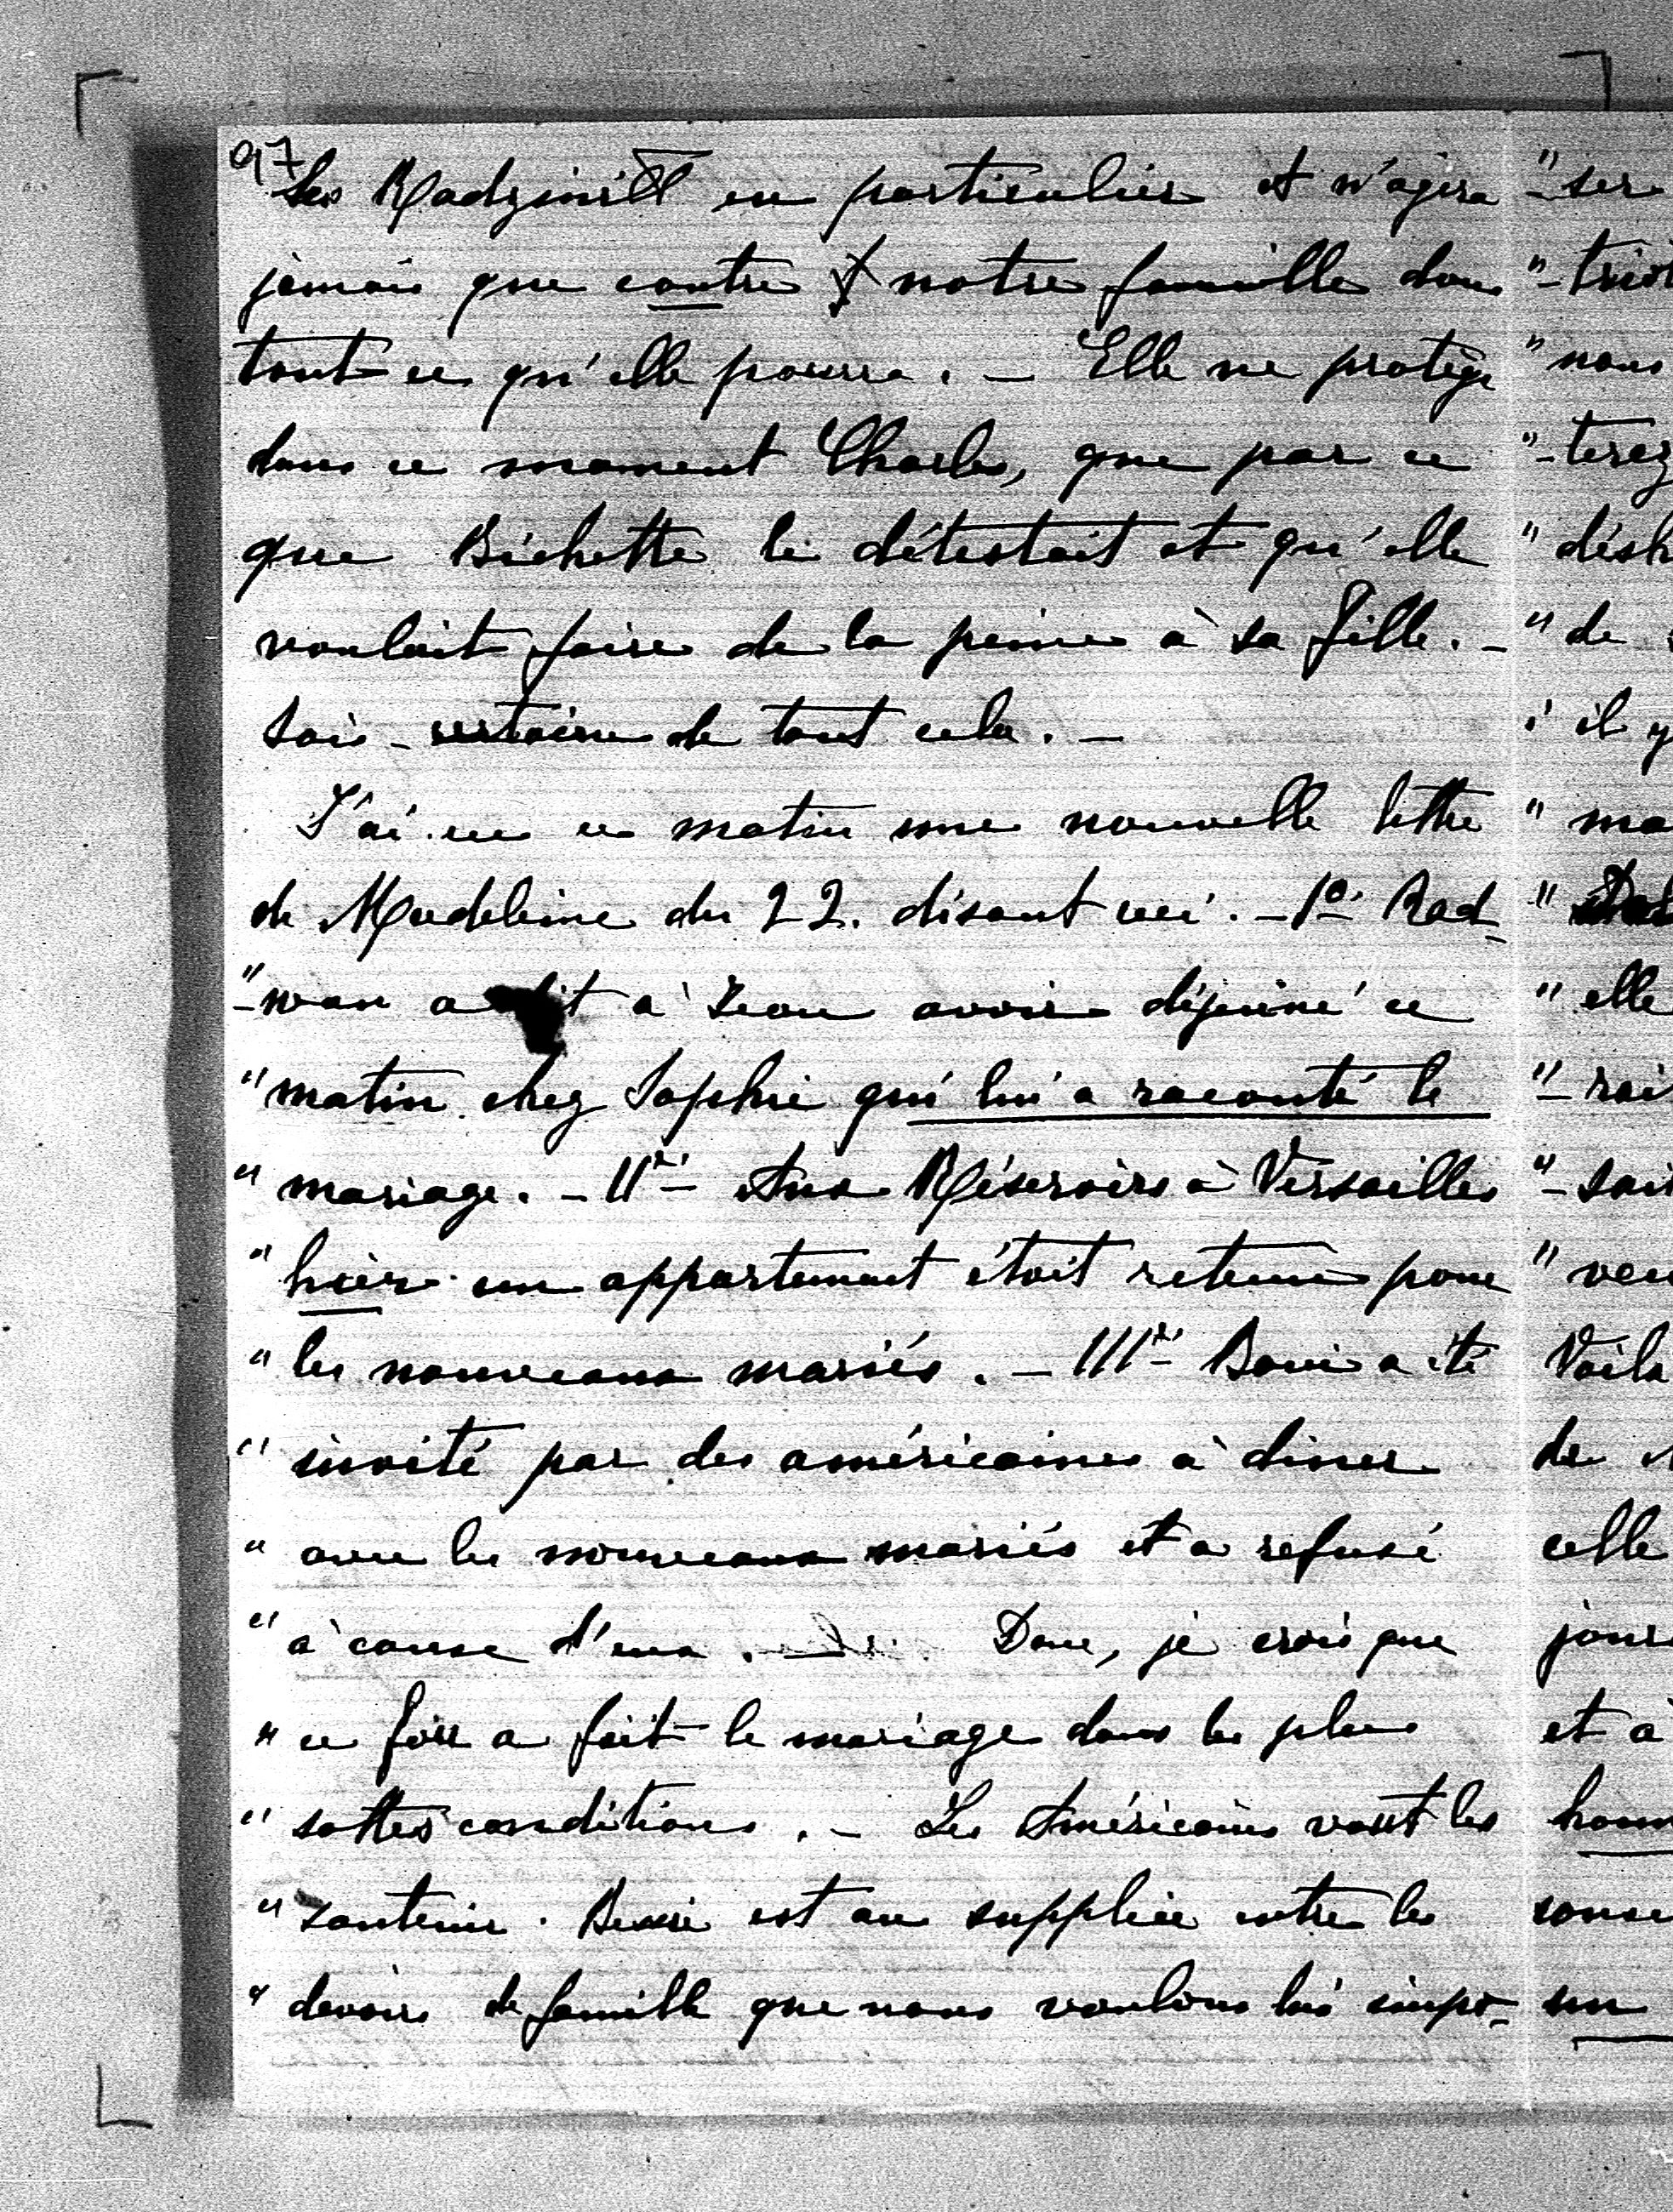 97
les Radziwill en particulier et n'agira
jamais que contre notre famille dans
tout ce qu'elle pourra. – Elle ne protège
dans ce moment Charles, que par ce
que Bichette le détestait et qu'elle
voulait faire de la peine à sa fille. –
Sois certaine de tout cela. –
J'ai eu ce matin une nouvelle lettre
de Madeleine du 22. disant ceci. – 1° Rad-
"-wan a dit à avoir déjeuné ce
"matin chez Sophie qui lui a raconté le
"mariage. – II° Aux Réservoirs à Versailles
"hier un appartement était retenu pour
"les nouveaux mariés. – III° a été
"invité par des américaines à diner
"avec les nouveaux mariés et a refusé
"à cause d'eux. – Donc, je crois que
"ce fou a fait le mariage dans les plus
"sottes conditions. – Les Américains vont les
"soutenir. est au supplice entre les
"devoirs de famille que nous voulons lui impo-
"-ser
"nous
"-terez
"de
"il y
"elle
Voilà
de
celle
et à
un